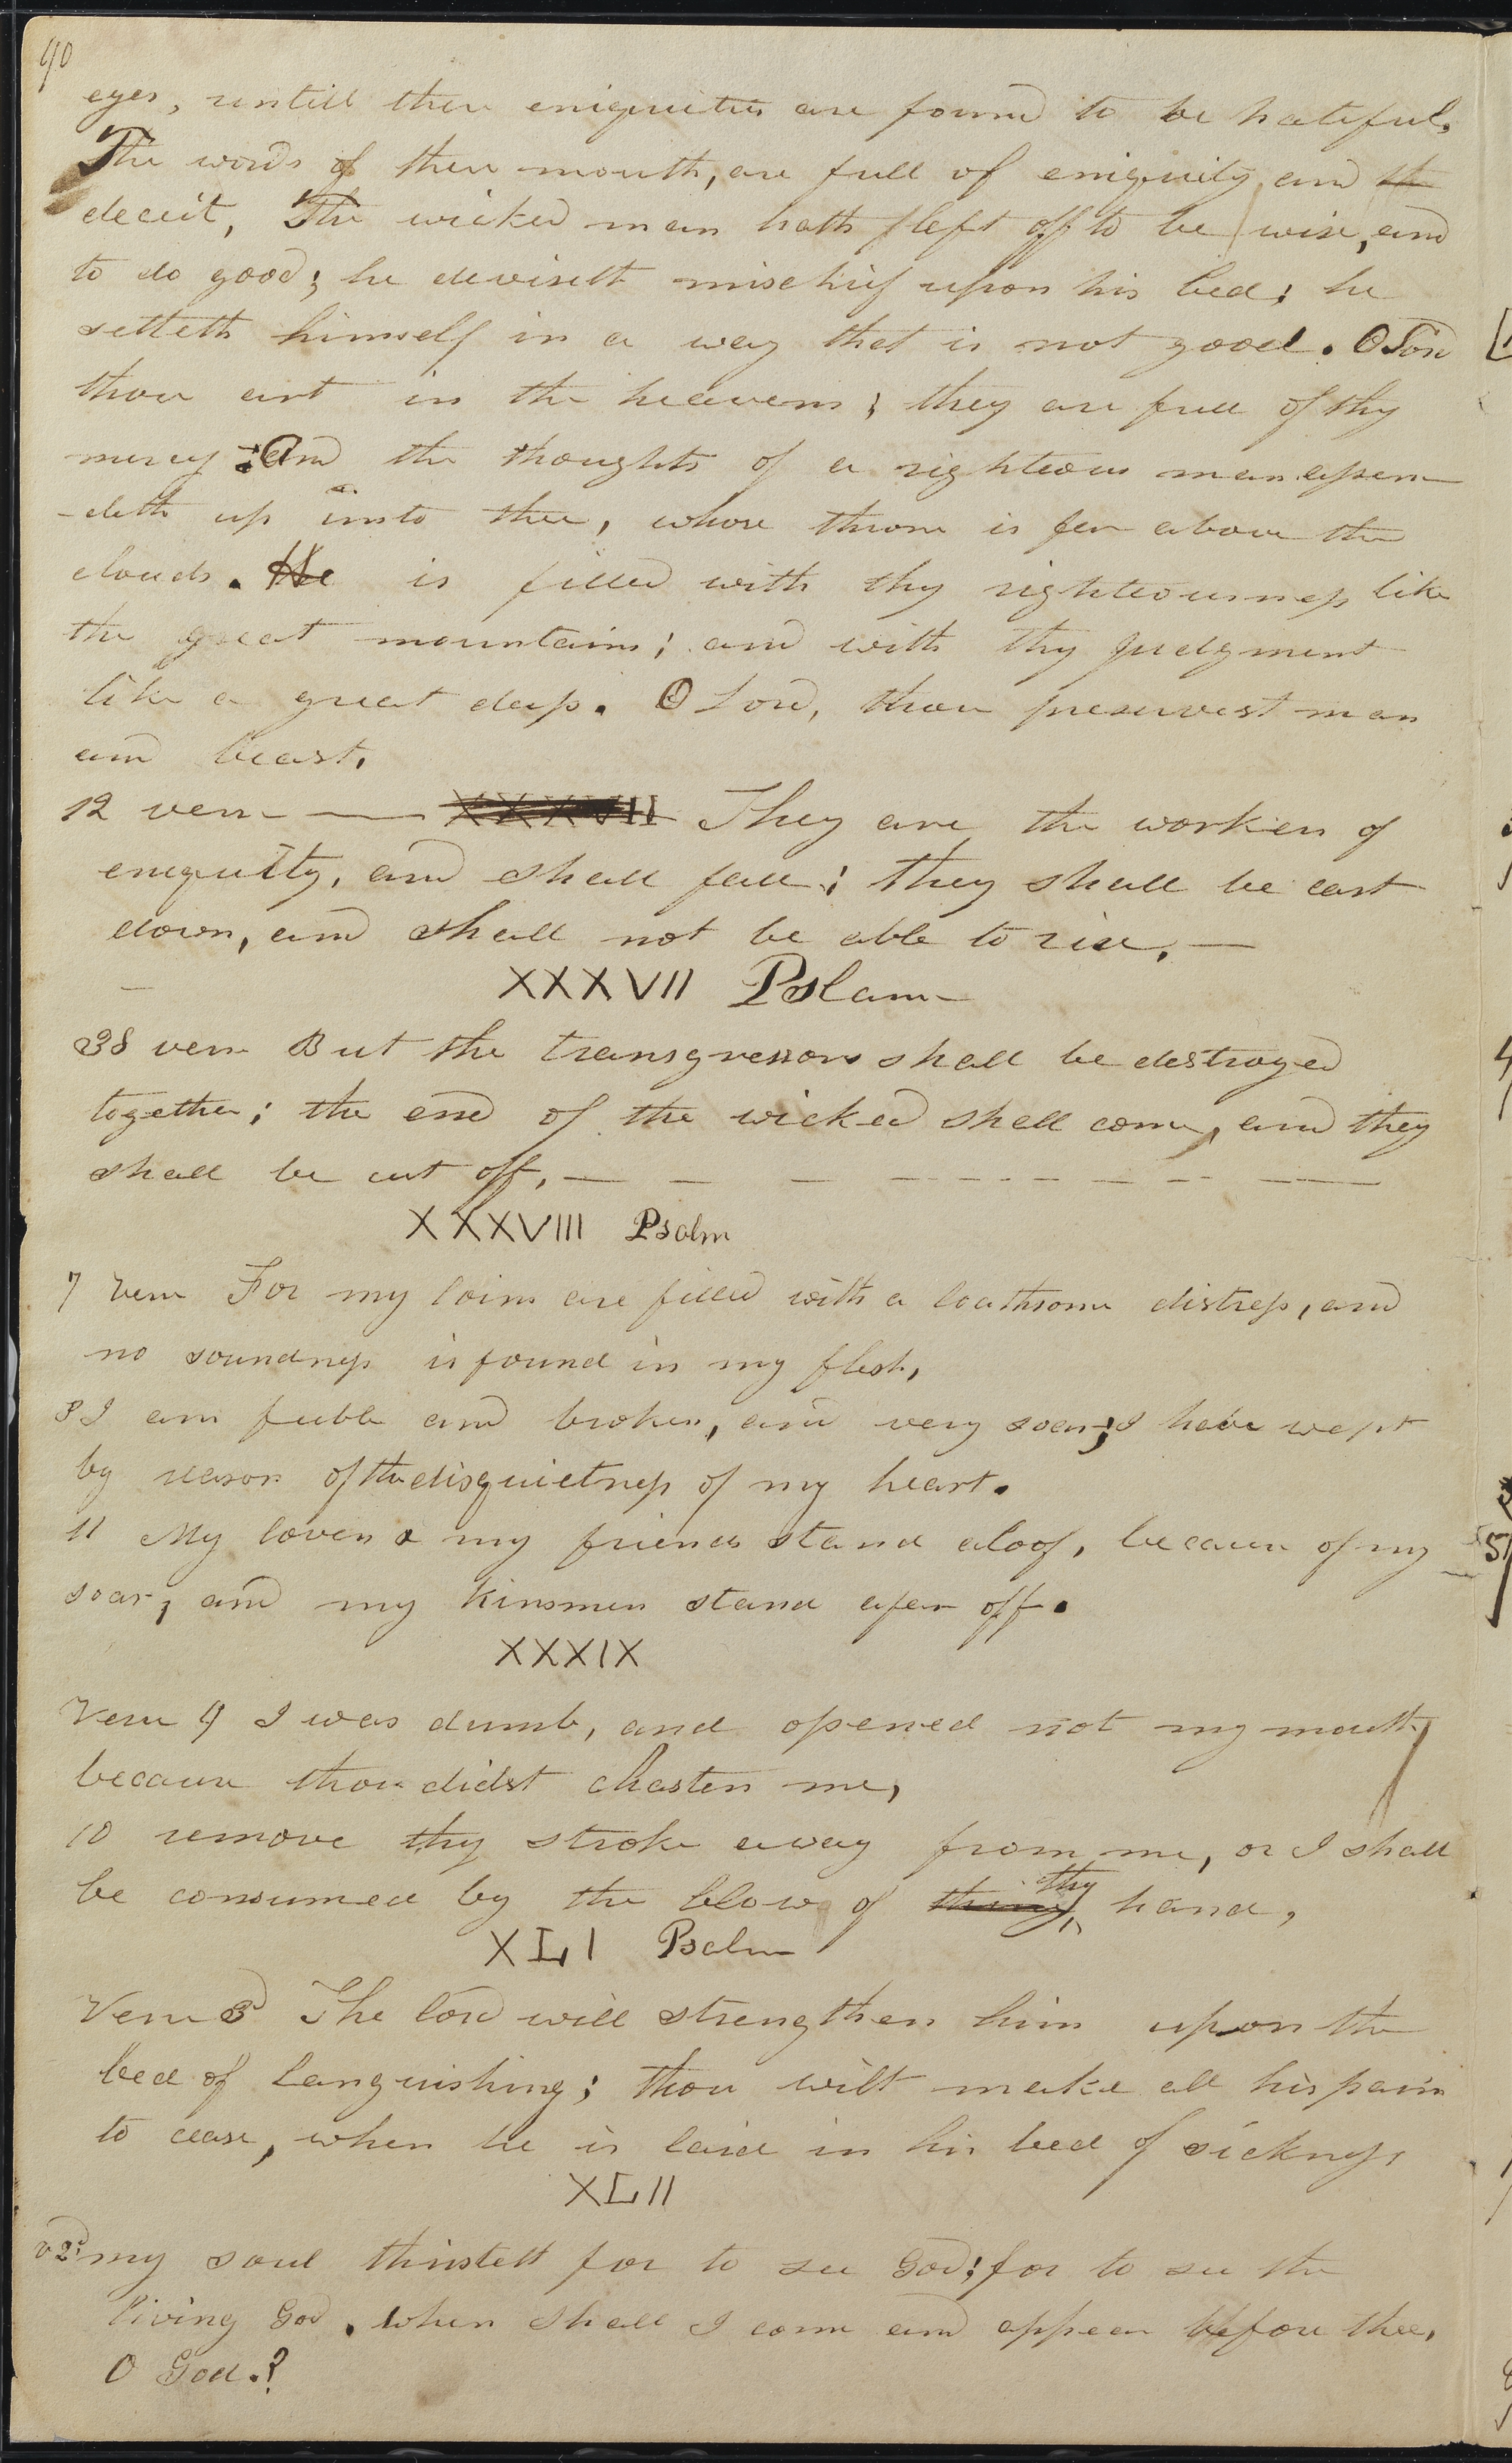 90
eyes, untill their eniquities are found to be hateful.
The words of their mouth, are full of eniquity, and th
deceit, The wicked man hath left off to be wise, and
to do good; he deviseth mischief upon his bed; he
setteth himself in a way that is not good. O Lord
thou art in the heavens; they are full of thy
mercy; And the thoughts of a righteous man assen
-deth up unto thee, whose throne is far above the
clouds. He is filled with thy righteousness like
the great mountains; and with thy Judgment
like a great deep. O Lord, thou preservest man
and beast.
12 verse — XXXVII They are the workers of
eniquity, and shall fall; they shall be cast
down, and shall not be able to rise. —
XXXVII Pslam
38 verse But the transgressors shall be destroyed
together; the end of the wicked shall come, and they
shall be cut off. — — — — - - - — - - —
XXXVIII Psalm
7 verse For my loins are filled with a loathsome distress, and
no soundness is found in my flesh,
8 I am feeble and broken, and very soar; I have wept
by reason of the disquietness of my heart.
11 My lovers & my friends stand aloof, because of my
soar; and my kinsmen stand afar off.
XXXIX
Verse 9 I was dumb, and opened not my mouth,
because thou didst chasten me,
10 remove thy stroke away from me, or I shall
be consumed by the blow of thiny thy hand,
XLI Psalm
Verse 3d The lord will strengthen him upon the
bed of Languishing; thou wilt make all his pain
to cease, when he is laid in his bed of sickness,
XLII
v 2d my soul thirsteth for to see God; for to see the
living God. when shall I come and appear before thee,
O God.?